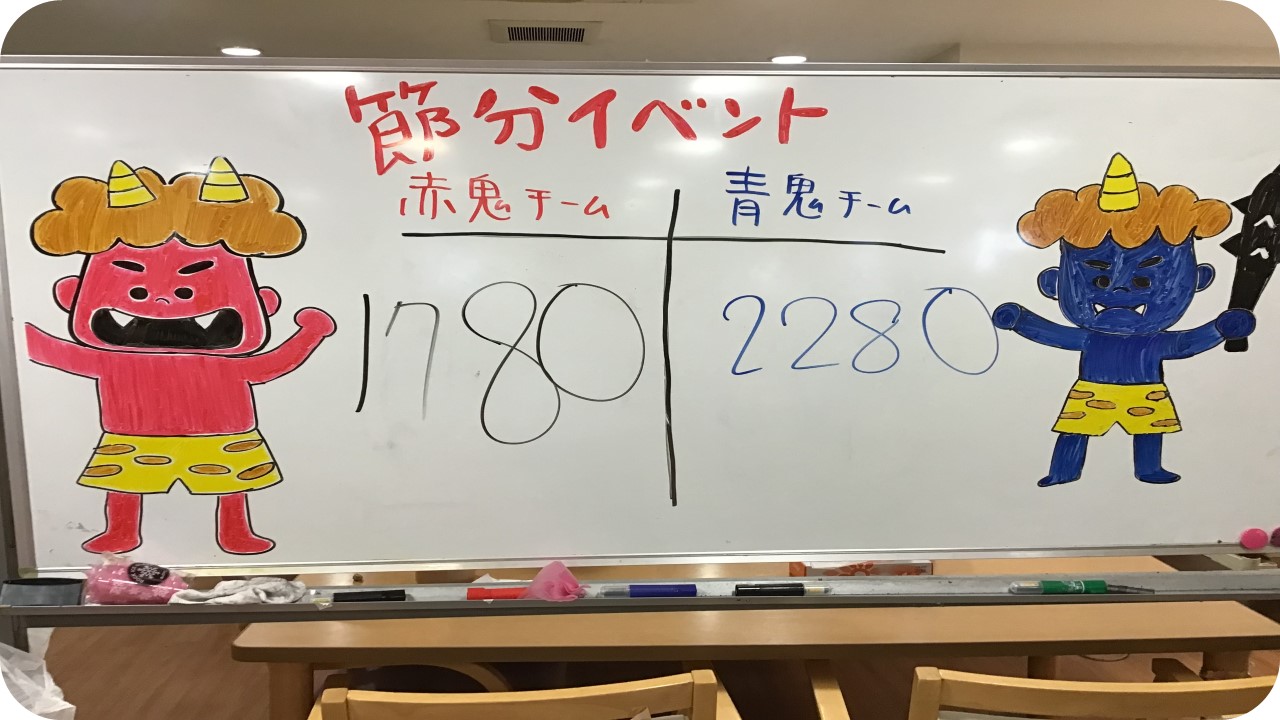 節分イベント
赤鬼チーム 青鬼チーム
1780 2280